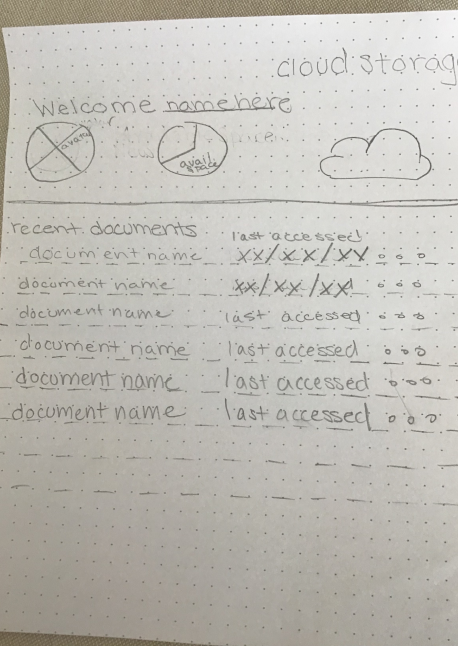 cloud storag
Welcome name here
avail
avail space
recent documents last accessed
document name xx/xx/xx
document name xx/xx/xx
document name last accessed
document name last accessed
document name last accessed
document name last accessed